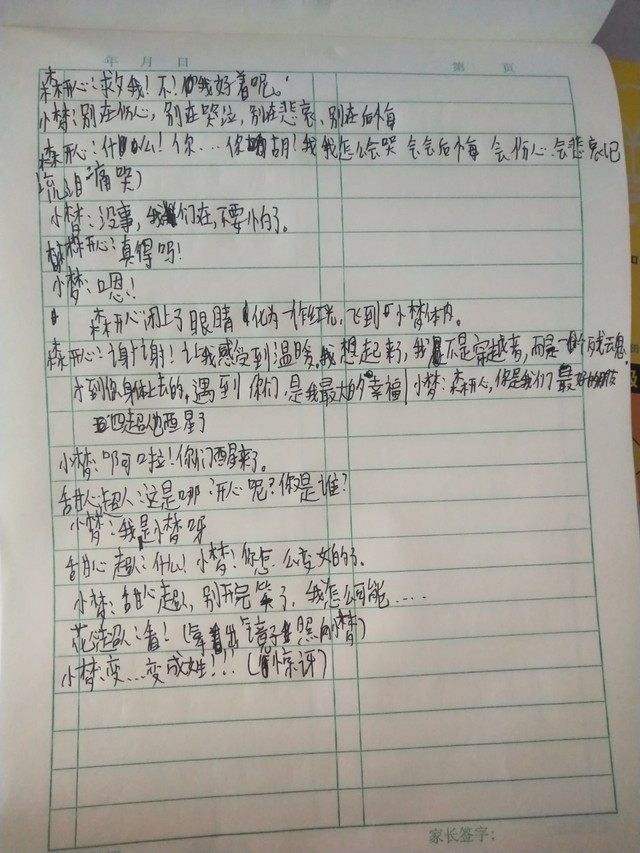 年 月 日 第 页
森开心：救我！不！我好着呢。
小梦：别在伤心，别在哭泣，别在悲哀、别在后悔
森开心：什么！你…你胡！我我怎么会哭 会会后悔 会伤心 会悲哀(已
流泪痛哭)
小梦：没事，我们在，不要怕了。
森开心：真得吗！
小梦：嗯！
森开心闭上了眼睛 化为一红光，飞到小梦体内。
森开心：谢谢！让我感受到温暖，我想起来了，我不是穿越者，而是一个残魂
才到你身体上去的。遇到你们，是我最大的幸福 小梦：森开心，你是我们最好的朋友
五四超他酉星了
小梦：啊啦！你们酉星来了。
甜心超人：这是哪 开心呢？你是谁？
小梦：我是小梦呀
甜心超人：什么！小梦！你怎么变女的了。
小梦：甜心超人，别开完笑了，我怎么可能……
花心超人：看！(拿出镜子照向小梦)
小梦：变…变成女生！！！(惊讶)
家长签字：